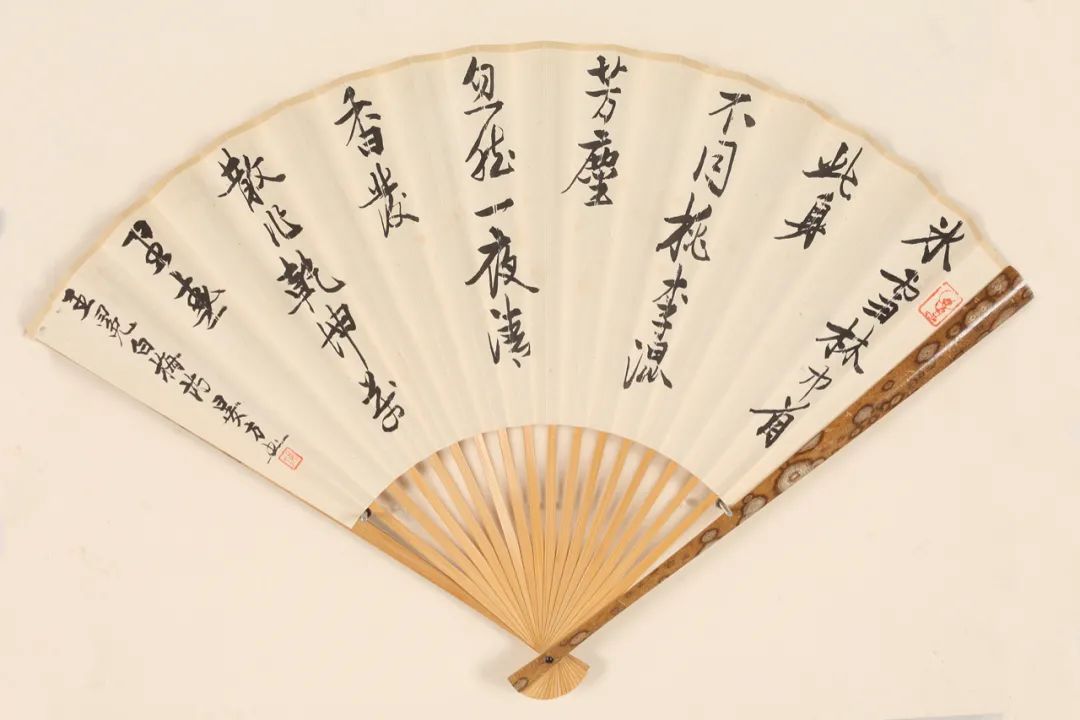 冰雪林中著
此身
不同桃李混
芳塵
忽然一夜清
香發
散作乾坤萬
里春
王冕白梅詩